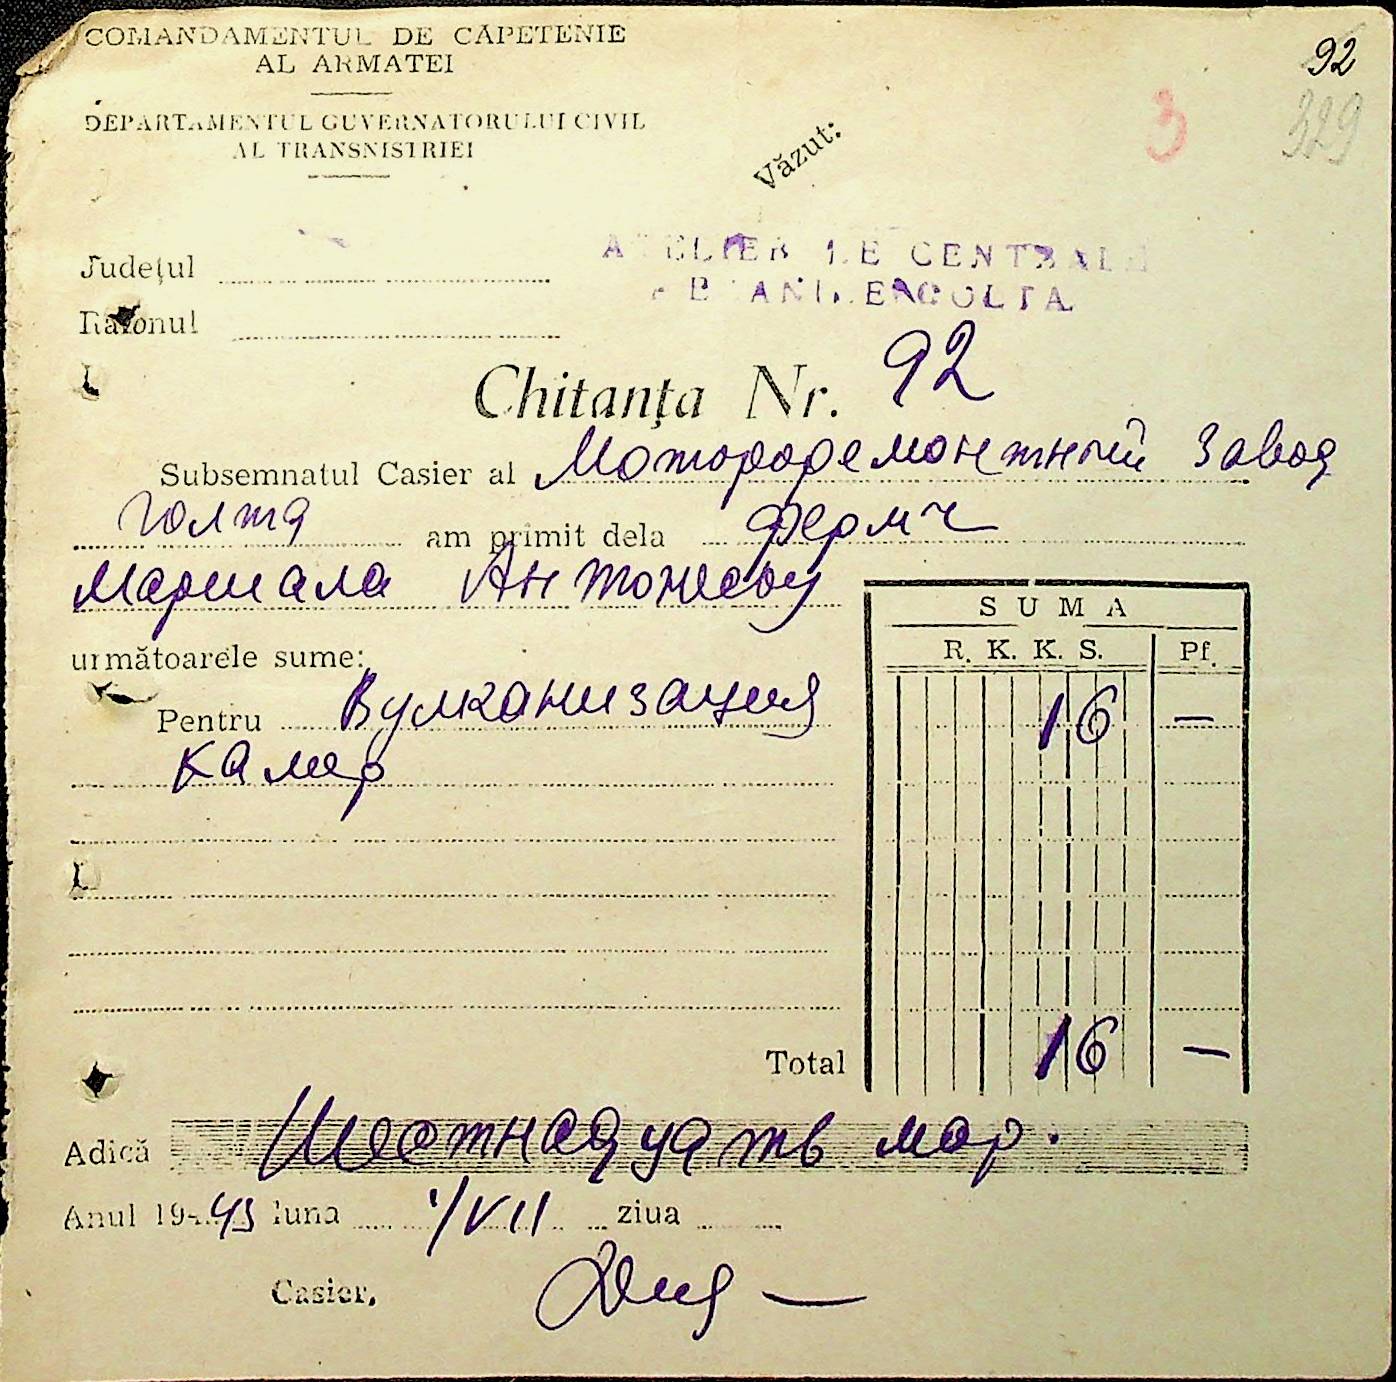 COMANDAMENTUL DE CĂPETENIE
AL ARMATEI
92
329
3
DEPARTAMENTUL GUVERNATORULUI CIVIL
AL TRANSNISTRIEI
Văzut:
Județul
CENTRALE
Raionul
Chitanța Nr. 92
Subsemnatul Casier al Мотороремонтный завод
Голта am primit dela ферми
Маршала Антонеску
următoarele sume:
SUMA
R. K. K. S. Pf.
Pentru Вулканизация 16 —
камер
Total 16 —
Adică Шестнадцать мар.
Anul 194 43 luna 1/VII ziua
Casier,